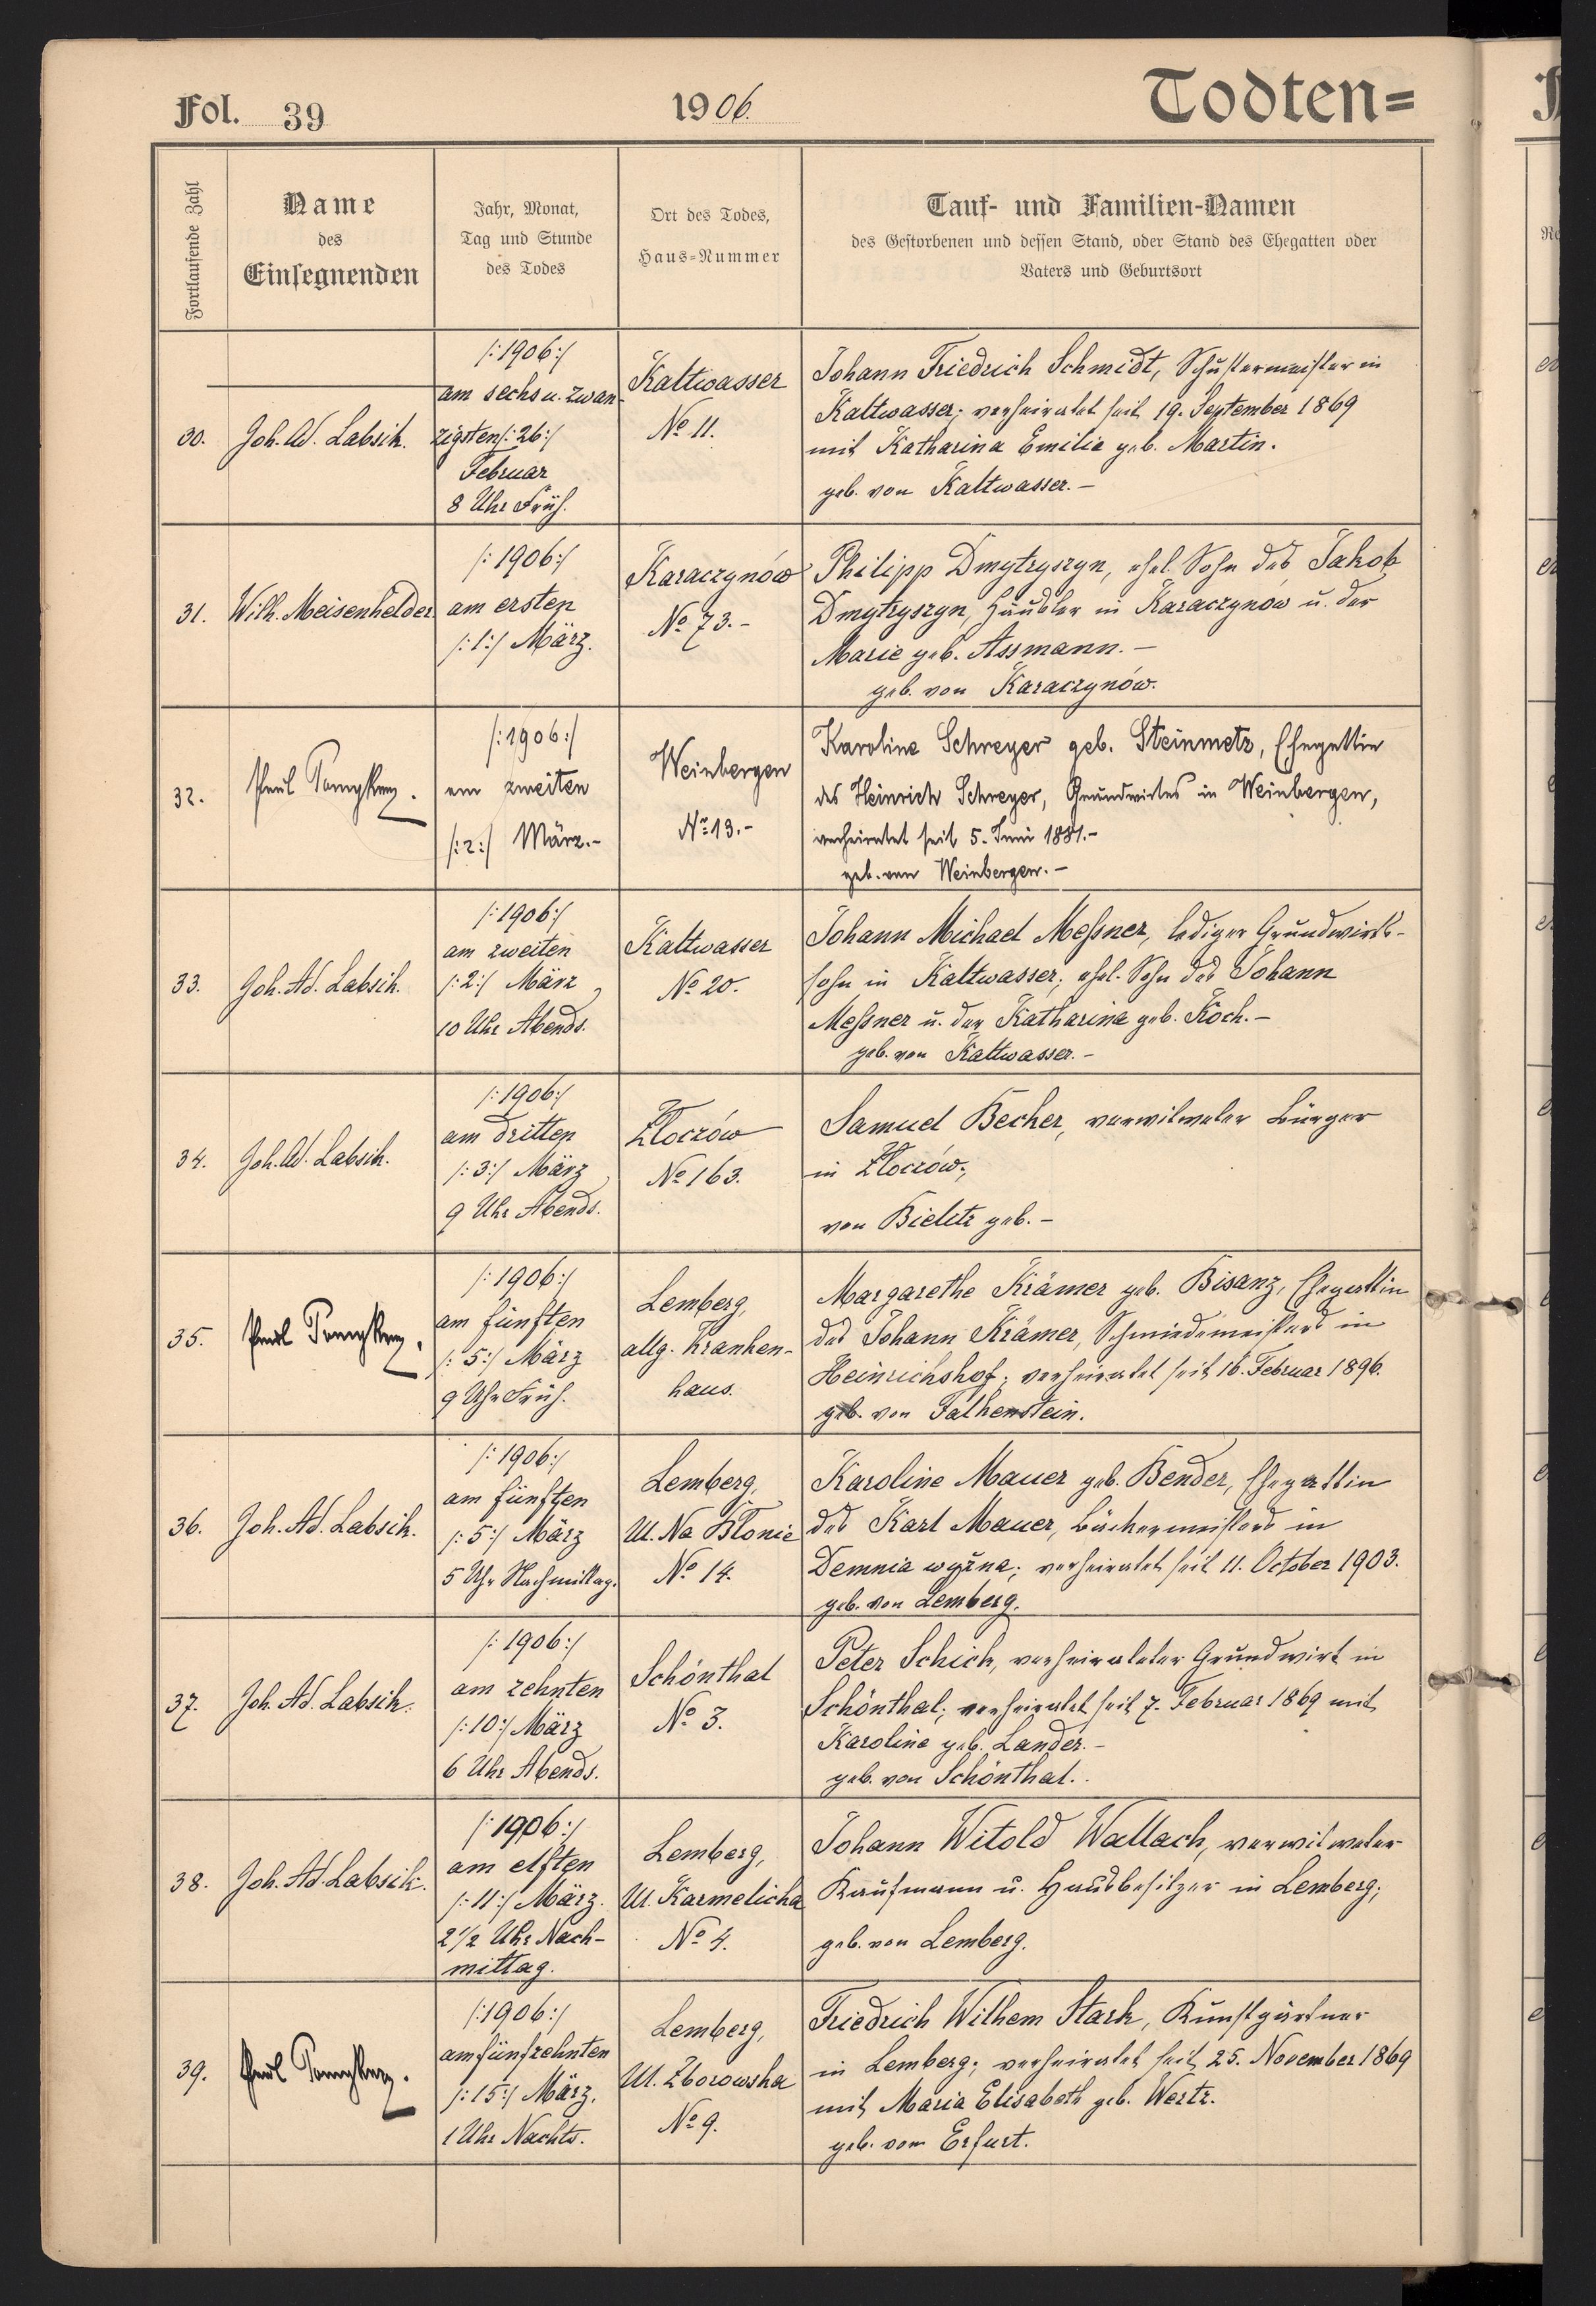 Fol. 39
1906.
Todten=
Fortlaufende Zahl
Name
des
Einsegnenden
Jahr, Monat,
Tag und Stunde
des Todes
Ort des Todes,
Haus-Nummer
Tauf- und Familien-Namen
des Gestorbenen und dessen Stand, oder Stand des Ehegatten oder
Vaters und Geburtsort
30.
Joh. Ad. Labsik.
/:1906:/
am sechs u. zwan-
zigsten/:26:/
Februar
8 Uhr Früh.
Kaltwasser
No 11.
Johann Friedrich Schmidt, Schustermeister in
Kaltwasser; verheiratet seit 19. September 1869
mit Katharina Emilie geb. Martin.
geb. von Kaltwasser.-
31.
Wilh. Meisenhelder.
/:1906:/
am ersten
/:1:/ März.
Karaczynów
No 73.-
Philipp Dmytryszyn, ehel. Sohn des Jakob
Dmytryszyn, Häusler in Karaczynów u. der
Marie geb. Assmann.-
geb. von Karaczynów.
32.
Paul
/:1906:/
am zweiten
/:2:/ März.-
Weinbergen
No 13.-
Karoline Schreyer geb. Steinmetz, Ehegattin
des Heinrich Schreyer, Grundwirtes in Weinbergen,
verheiratet seit 5. Juni 1881.-
geb. von Weinbergen.-
33.
Joh. Ad. Labsik.
/:1906:/
am zweiten
/:2:/ März
10 Uhr Abends.
Kaltwasser
No 20.
Johann Michael Meßner, lediger Grundwirts-
sohn in Kaltwasser; ehel. Sohn des Johann
Meßner u. der Katharina geb. Koch.-
geb. von Kaltwasser.-
34.
Joh. Ad. Labsik.
/:1906:/
am dritten
/:3:/ März
9 Uhr Abends.
Złoczów
No 163.
Samuel Becker, verwitweter Bürger
in Złoczów;
von Bielitz geb.-
35.
Paul
/:1906:/
am fünften
/:5:/ März
9 Uhr Früh.
Lemberg,
allg. Kranken-
haus.
Margarethe Krämer geb. Bisanz, Ehegattin
des Johann Krämer, Schmiedemeisters in
Heinrichshof; verheiratet seit 16. Februar 1896.
geb. von Falkenstein.
36.
Joh. Ad. Labsik.
/:1906:/
am fünften
/:5:/ März
5 Uhr Nachmittag.
Lemberg,
Ul. Na Błonie
No 14.
Karoline Mauer geb. Bender, Ehegattin
des Karl Mauer, Bäckermeisters in
Demnia wyżna; verheiratet seit 11. October 1903.
geb. von Lemberg.
37.
Joh. Ad. Labsik.
/:1906:/
am zehnten
/:10:/ März
6 Uhr Abends.
Schönthal
No 3.
Peter Schick, verheirateter Grundwirt in
Schönthal; verheiratet seit 7. Februar 1869 mit
Karoline geb. Lander.-
geb. von Schönthal.
38.
Joh. Ad. Labsik.
/:1906:/
am elften
/:11:/ März.
2 1/2 Uhr Nach-
mittag.
Lemberg,
Ul. Karmelicka
No 4.
Johann Witold Wallach, verwitweter
Kaufmann u. Hausbesitzer in Lemberg;
geb. von Lemberg.
39.
Paul
/:1906:/
am fünfzehnten
/:15:/ März.
1 Uhr Nachts.
Lemberg,
Ul. Zborowska
No 9.
Friedrich Wilhem Stark, Kunstgärtner
in Lemberg; verheiratet seit 25. November 1869
mit Maria Elisabeth geb. Wertz.
geb. von Erfurt.